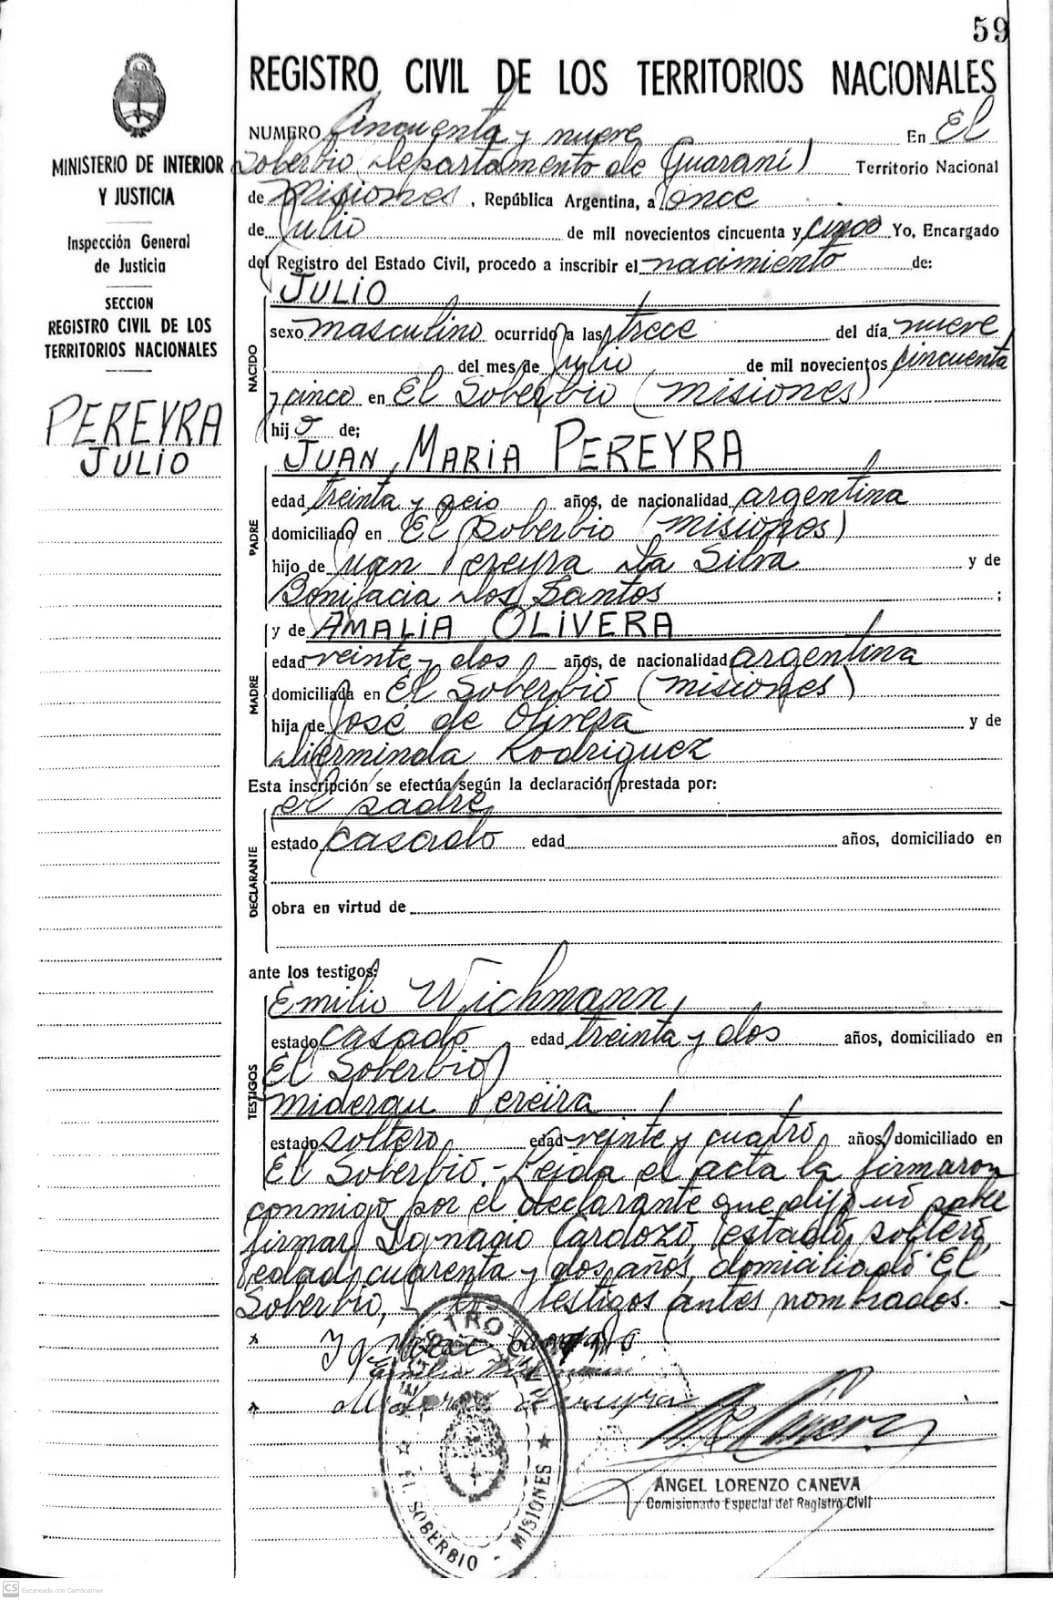 59
REGISTRO CIVIL DE LOS TERRITORIOS NACIONALES
MINISTERIO DE INTERIOR
Y JUSTICIA
Inspección General
de Justicia
SECCION
REGISTRO CIVIL DE LOS
TERRITORIOS NACIONALES
PEREYRA
JULIO
NUMERO Cincuenta y nueve En El
Soberbio Departamento de Guaraní Territorio Nacional
de Misiones, República Argentina, a once
de Julio de mil novecientos cincuenta y cinco Yo, Encargado
del Registro del Estado Civil, procedo a inscribir el nacimiento de:
NACIDO
JULIO
sexo masculino ocurrido a las trece del día nueve
del mes de Julio de mil novecientos cincuenta
y cinco en El Soberbio (Misiones)
hijo de;
PADRE
JUAN MARIA PEREYRA
edad treinta y seis años, de nacionalidad argentina
domiciliado en El Soberbio (Misiones)
hijo de Juan Pereyra Da Silva y de
Bonifacia Dos Santos ;
MADRE
y de AMALIA OLIVERA
edad veinte y dos años, de nacionalidad argentina
domiciliada en El Soberbio (Misiones)
hija de José de Olivera y de
Rodriguez
Esta inscripción se efectúa según la declaración prestada por:
DECLARANTE
el padre
estado casado edad años, domiciliado en
obra en virtud de
ante los testigos:
TESTIGOS
Emilio Wichmann,
estado casado edad treinta y dos años, domiciliado en
El Soberbio
Pereira
estado soltero edad veinte y cuatro años, domiciliado en
El Soberbio.- Leida el acta la firmaron
conmigo por el declarante que dijo no sabe
firmar Ignacio Cardozo, estado soltero,
edad cuarenta y dos años, domiciliado El
Soberbio, - testigos antes nombrados. -
EL SOBERBIO - MISIONES
ANGEL LORENZO CANEVA
Comisionado Especial del Registro Civil
CS Escaneado con CamScanner